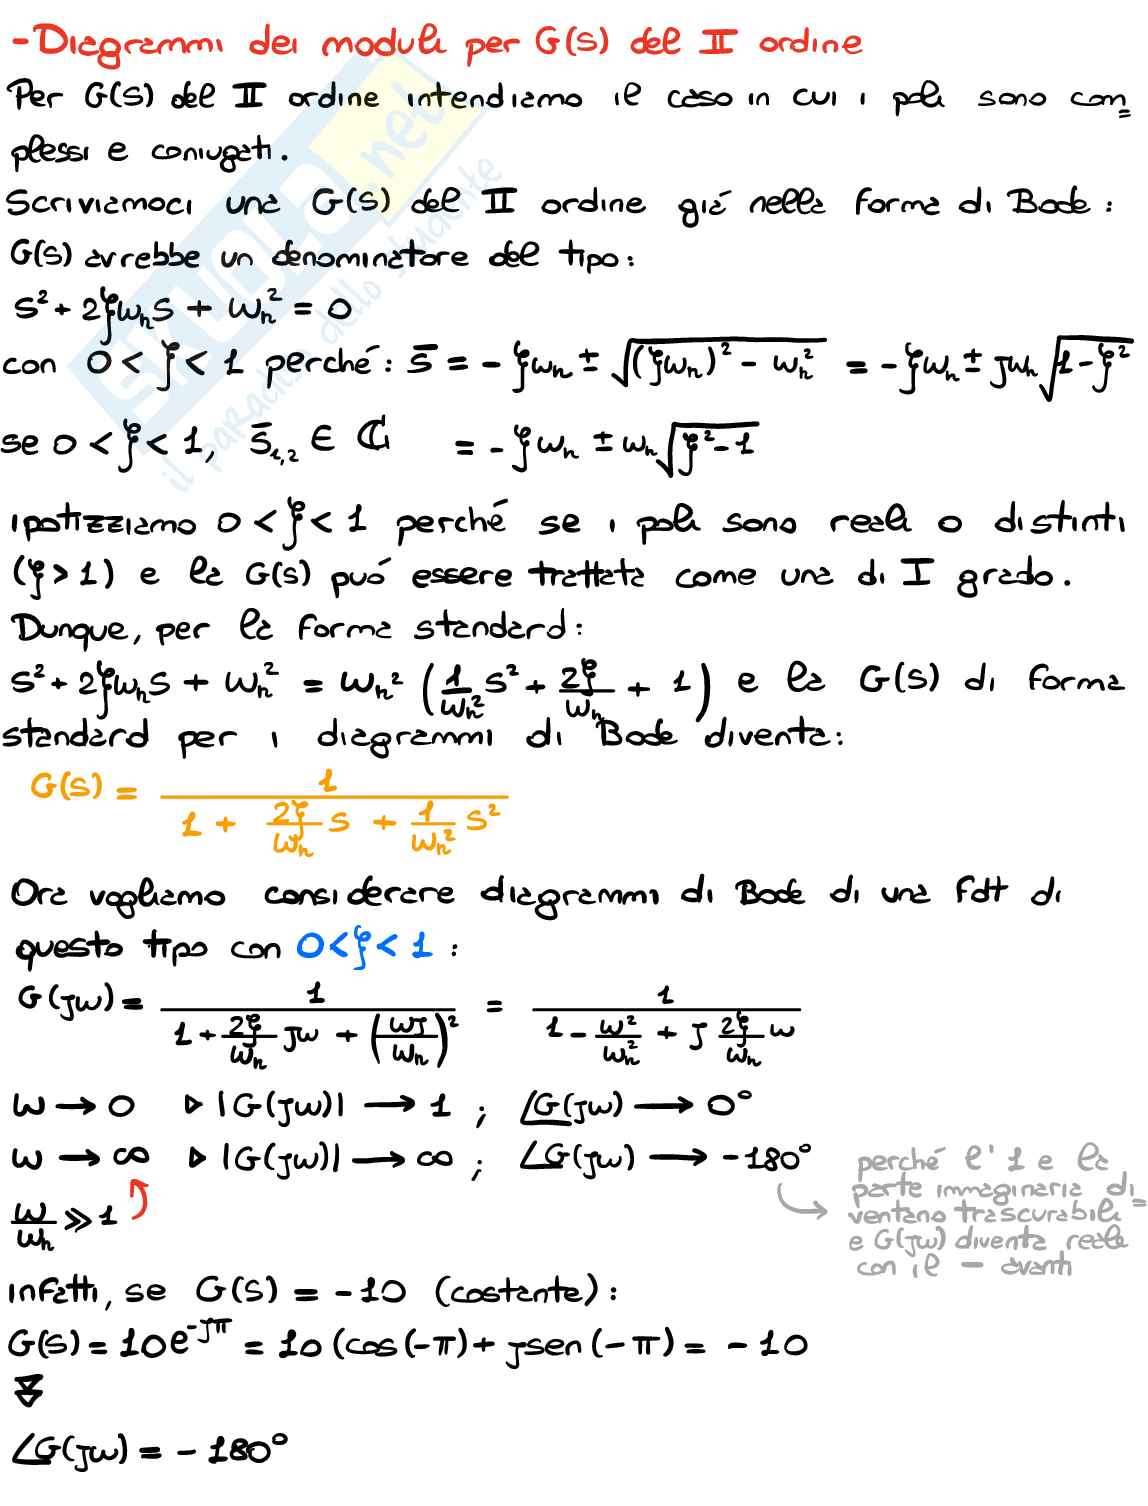 -Diagrammi dei moduli per G(s) del II ordine
Per G(s) del II ordine intendiamo il caso in cui i poli sono com=
plessi e coniugati.
Scriviamoci una G(s) del II ordine giá nella forma di Bode:
G(s) avrebbe un denominatore del tipo:
s² + 2ξωₙs + ωₙ² = 0
con 0 < ξ < 1 perché: s̄ = - ξωₙ ± √((ξωₙ)² - ωₙ²) = - ξωₙ ± jωₙ√(1 - ξ²)
se 0 < ξ < 1, s̄₁,₂ ∈ ℂ = - ξωₙ ± ωₙ√(ξ² - 1)
ipotizziamo 0 < ξ < 1 perché se i poli sono reali o distinti
(ξ > 1) e la G(s) puó essere trattata come una di I grado.
Dunque, per la forma standard:
s² + 2ξωₙs + ωₙ² = ωₙ² (1/ωₙ² s² + 2ξ/ωₙ + 1) e la G(s) di forma
standard per i diagrammi di Bode diventa:
G(s) = 1 / (1 + 2ξ/ωₙ s + 1/ωₙ² s²)
Ora vogliamo considerare diagrammi di Bode di una fdt di
questo tipo con 0<ξ<1 :
G(jω) = 1 / (1 + 2ξ/ωₙ jω + (ωj/ωₙ)²) = 1 / (1 - ω²/ωₙ² + j 2ξ/ωₙ ω)
ω → 0 ▷ |G(jω)| → 1 ; ∠G(jω) → 0°
ω → ∞ ▷ |G(jω)| → ∞ ; ∠G(jω) → -180°
perché l'1 e la
parte immaginaria di=
ventano trascurabili
e G(jω) diventa reale
con il - avanti
ω/ωₙ ≫ 1
infatti, se G(s) = -10 (costante):
G(s) = 10e^-jπ = 10 (cos(-π) + jsen(-π) = - 10
∠G(jω) = - 180°
SKUOLA.net
il paradiso dello studente